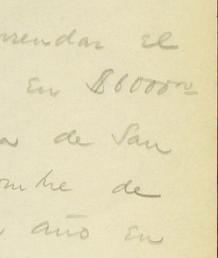 rrendar el
en $6000.00
a de San
ombre de
año en